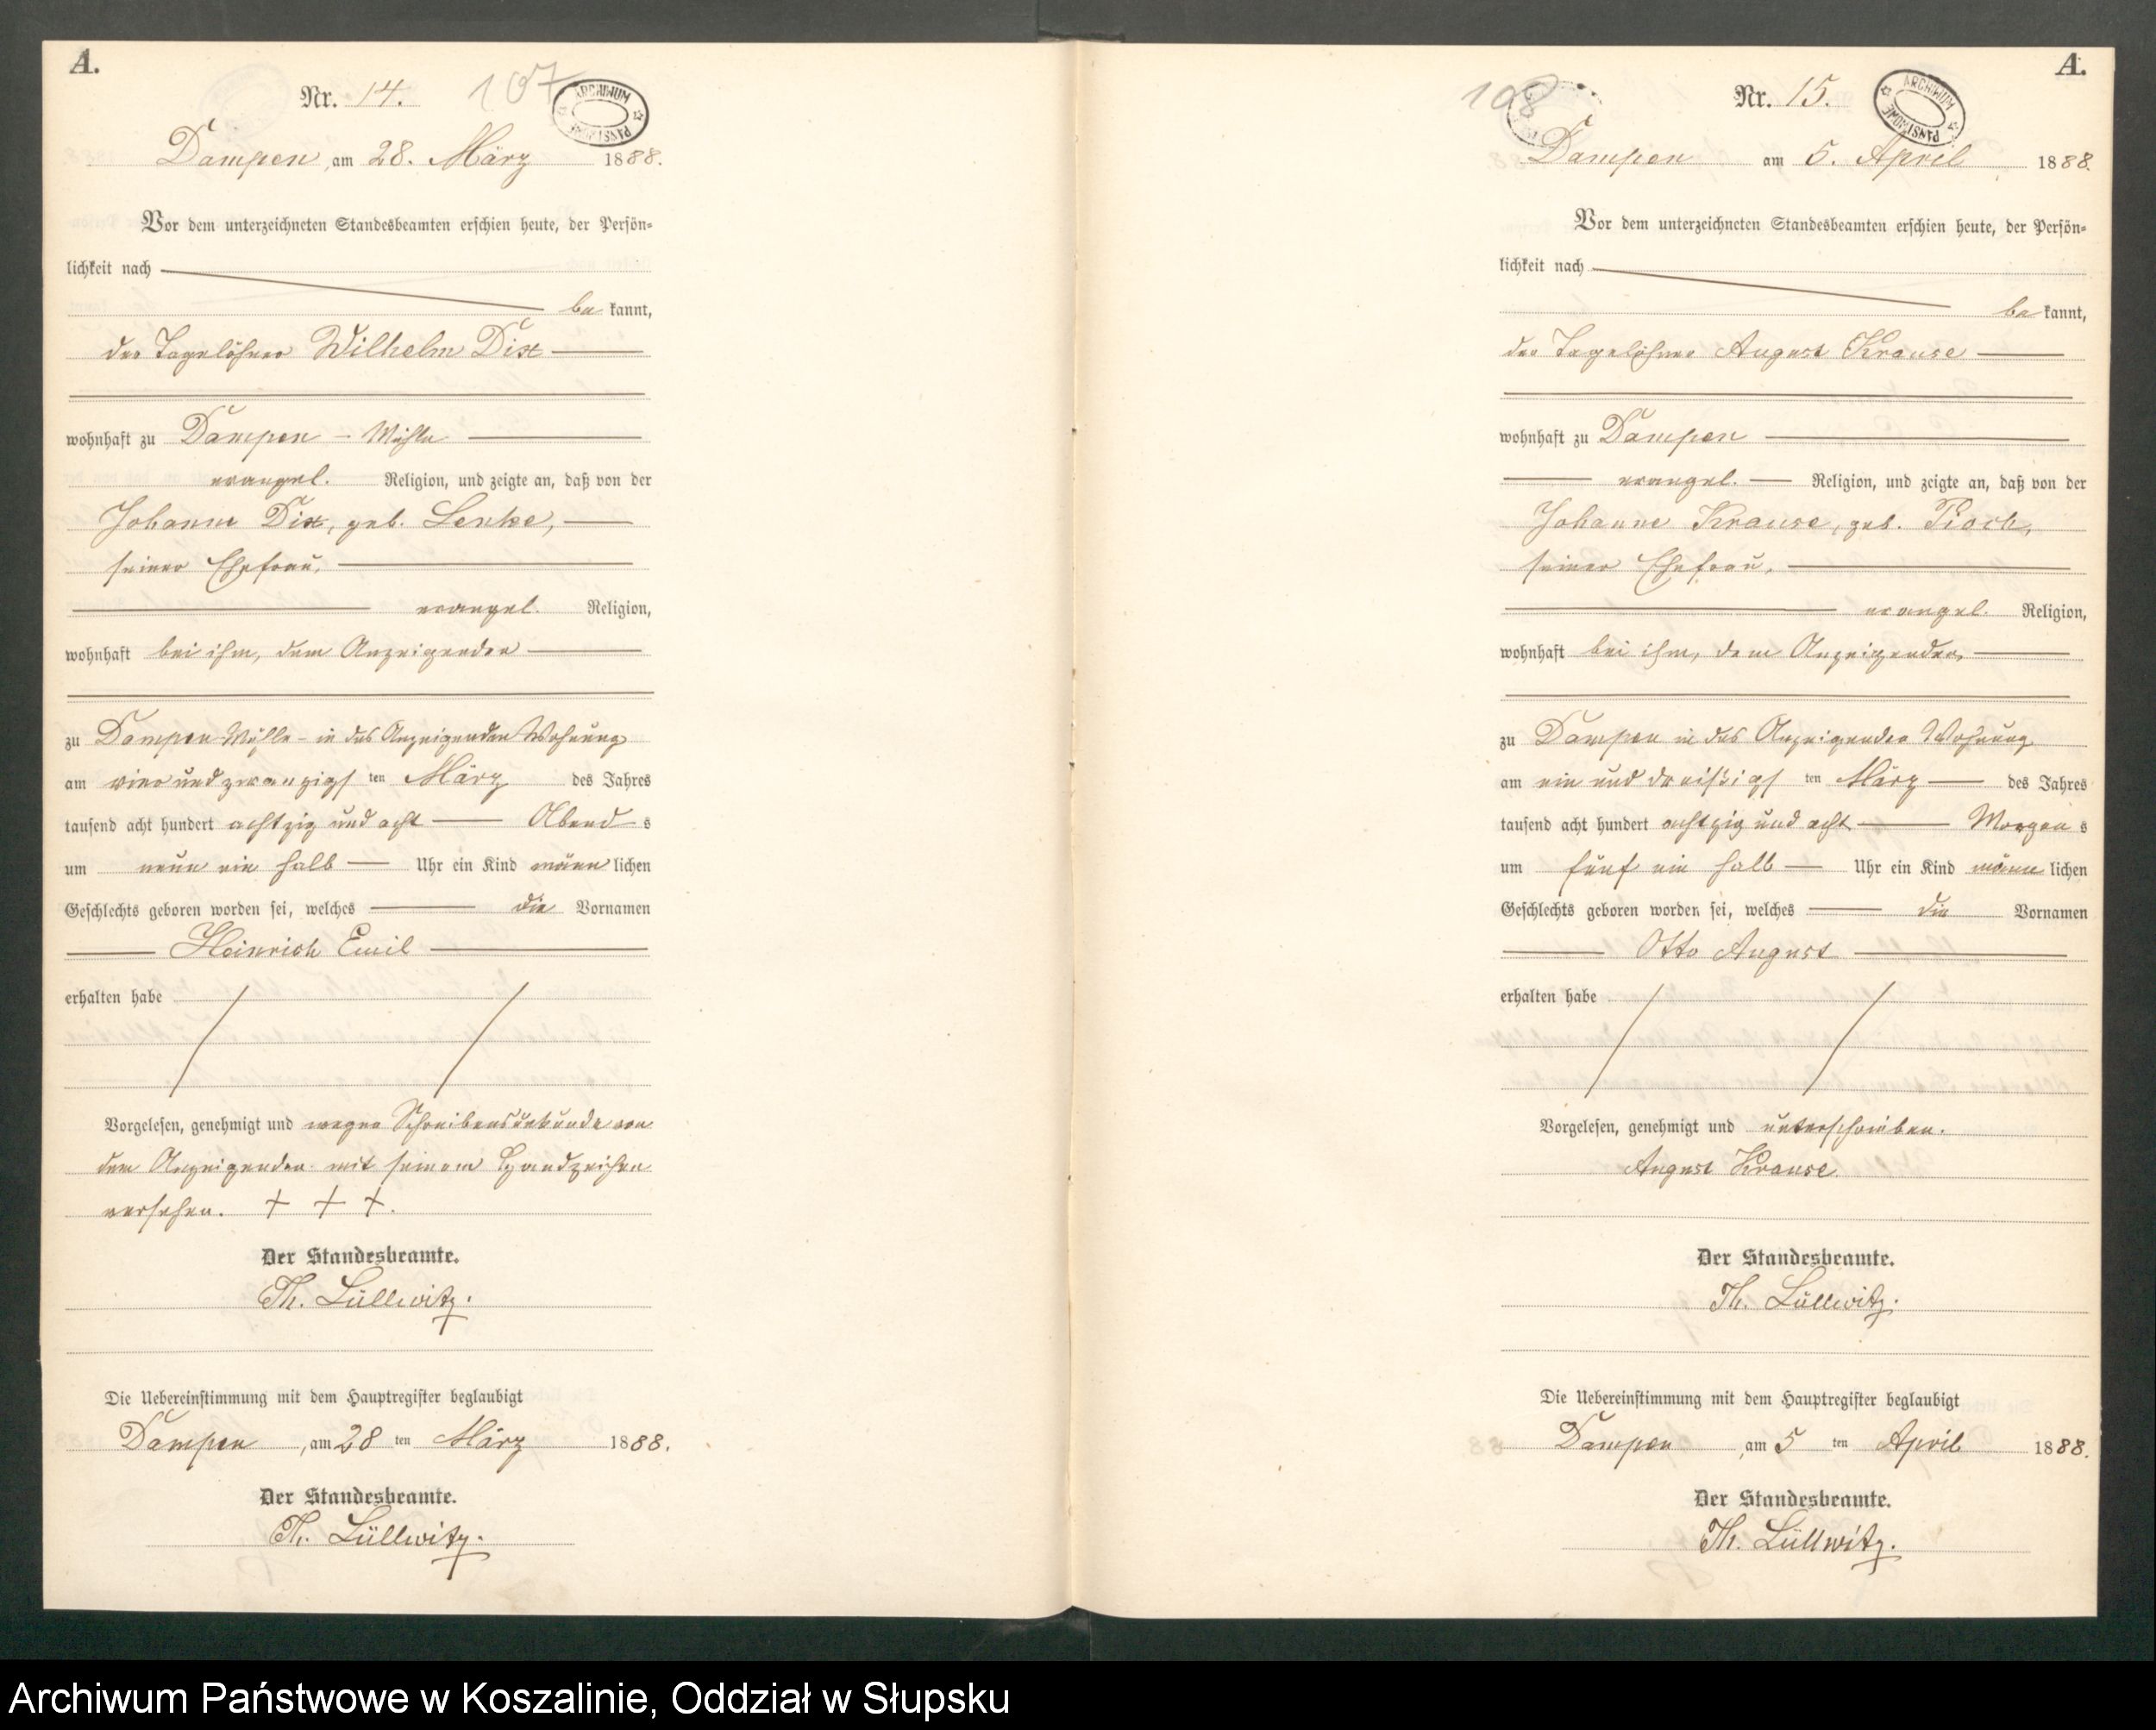 A.
Nr. 14. 107
ARCHIWUM PAŃSTWOWE
Dampen, am 28. März 1888.
Vor dem unterzeichneten Standesbeamten erschien heute, der Persön=
lichkeit nach
be kannt,
der Tagelöhner Wilhelm Dix
wohnhaft zu Dampen - Mühle
evangel. Religion, und zeigte an, daß von der
Johanne Dix, geb. Lenke,
seiner Ehefrau,
evangel. Religion,
wohnhaft bei ihm, dem Anzeigenden
zu Dampen Mühle - in des Anzeigenden Wohnung
am vier und zwanzigs ten März des Jahres
tausend acht hundert achtzig und acht Abend s
um neun ein halb Uhr ein Kind männ lichen
Geschlechts geboren worden sei, welches die Vornamen
Heinrich Emil
erhalten habe
Vorgelesen, genehmigt und wegen Schreibensunkunde von
dem Anzeigenden mit seinem Handzeichen
versehen. + + +.
Der Standesbeamte.
Th. Lüllwitz.
Die Uebereinstimmung mit dem Hauptregister beglaubigt
Dampen, am 28 ten März 1888.
Der Standesbeamte.
Th. Lüllwitz.
A.
108 Nr. 15.
ARCHIWUM PAŃSTWOWE
Dampen am 5. April 1888.
Vor dem unterzeichneten Standesbeamten erschien heute, der Persön=
lichkeit nach
be kannt,
der Tagelöhner August Krause
wohnhaft zu Dampen
evangel. Religion, und zeigte an, daß von der
Johanne Krause, geb. Pioch,
seiner Ehefrau,
evangel. Religion,
wohnhaft bei ihm, dem Anzeigenden,
zu Dampen in des Anzeigenden Wohnung
am ein und dreißigs ten März des Jahres
tausend acht hundert achtzig und acht Morgen s
um fünf ein halb Uhr ein Kind männ lichen
Geschlechts geboren worden sei, welches die Vornamen
Otto August
erhalten habe
Vorgelesen, genehmigt und unterschrieben.
August Krause
Der Standesbeamte.
Th. Lüllwitz.
Die Uebereinstimmung mit dem Hauptregister beglaubigt
Dampen, am 5 ten April 1888.
Der Standesbeamte.
Th. Lüllwitz.
Archiwum Państwowe w Koszalinie, Oddział w Słupsku